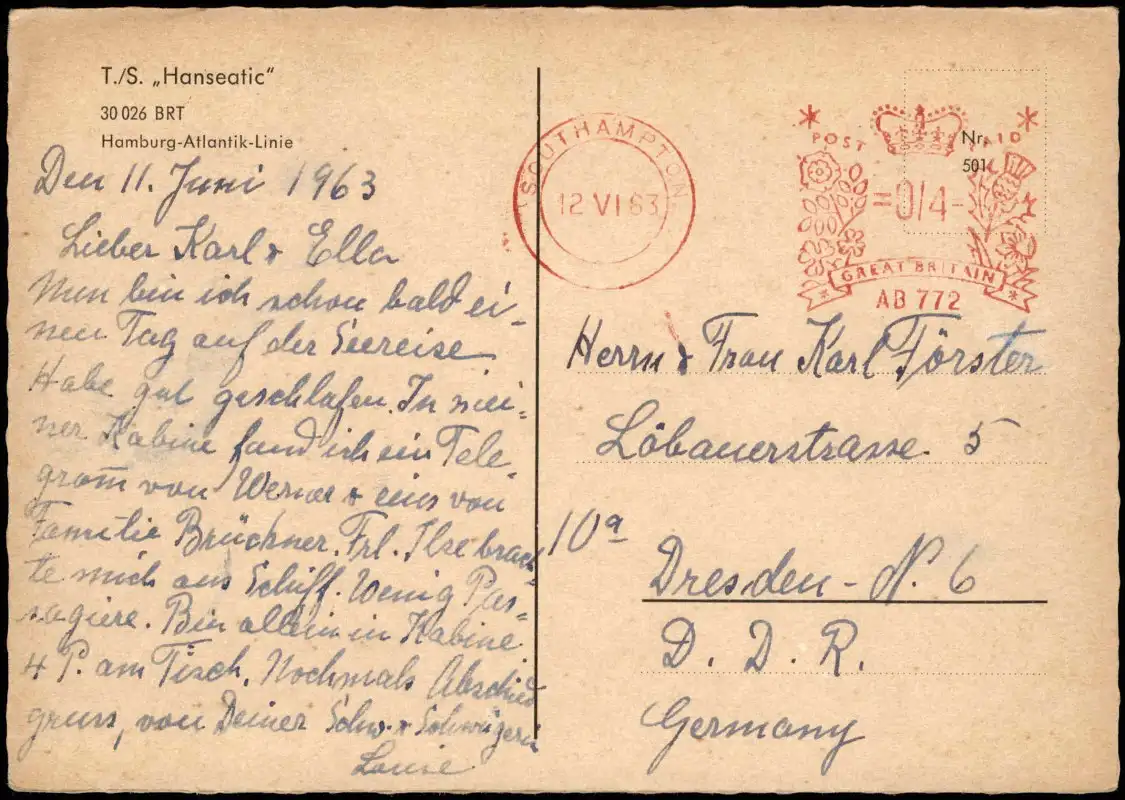 T./S. „Hanseatic“
30 026 BRT
Hamburg-Atlantik-Linie
Den 11. Juni 1963
Lieber Karl & Ella
Nun bin ich schon bald ei-
nen Tag auf der Seereise
Habe gut geschlafen. In mei-
ner Kabine fand ich ein Tele-
gram̄ von Werner & eins von
Familie Brückner. Frl. Ilse brach-
te mich ans Schiff. Wenig Pas-
sagiere. Bin allein in Kabine
4 P. am Tisch. Nochmals Abschied
gruss, von Deiner Schw. & Schwägerin
Louise
SOUTHAMPTON
12 VI 63
POST PAID
Nr.
501
=0/4-
GREAT BRITAIN
AB 772
Herrn & Frau Karl Förster
Löbauerstrasse 5
10a
Dresden - N. 6
D. D. R.
Germany